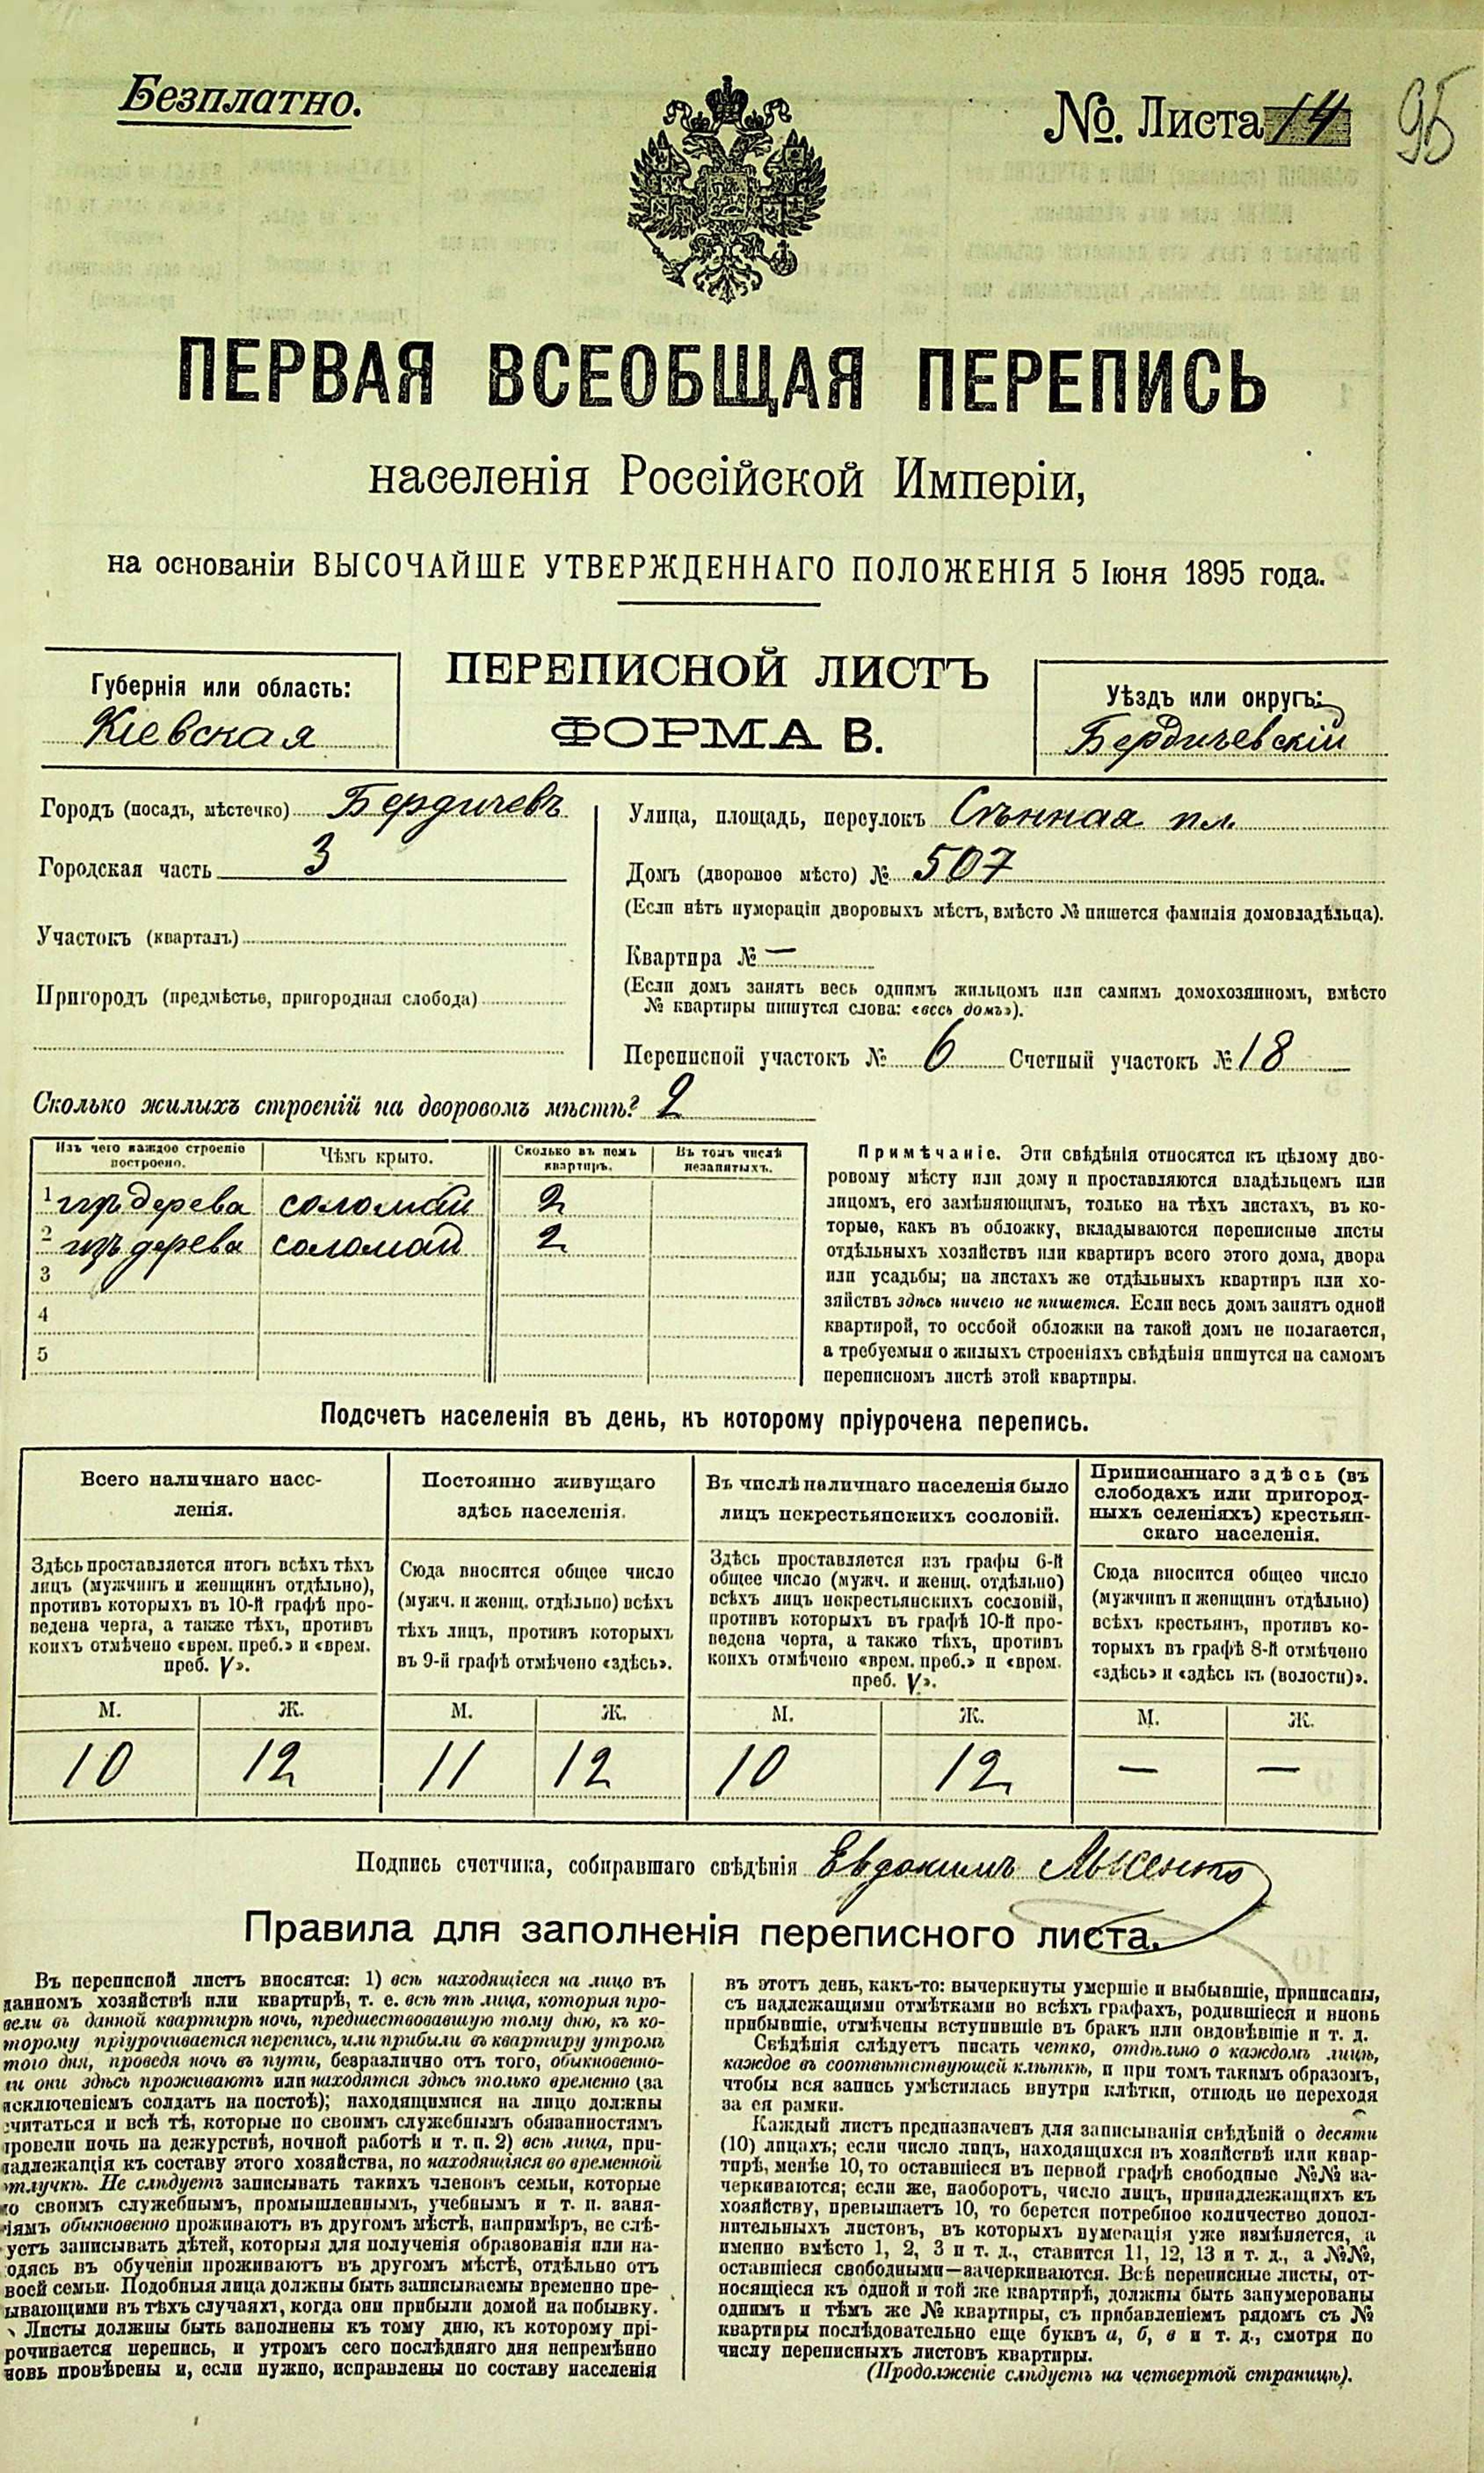 Безплатно.
№. Листа 14
95
ПЕРВАЯ ВСЕОБЩАЯ ПЕРЕПИСЬ
населенія Россійской Имперіи,
на основаніи ВЫСОЧАЙШЕ УТВЕРЖДЕННАГО ПОЛОЖЕНІЯ 5 Іюня 1895 года.
ПЕРЕПИСНОЙ ЛИСТЪ
ФОРМА В.
Губернія или область:
Кіевская
Уѣздъ или округъ:
Бердичевскій
Городъ (посадъ, мѣстечко) Бердичевъ
Городская часть 3
Участокъ (кварталъ)
Пригородъ (предмѣстье, пригородная слобода)
Улица, площадь, переулокъ Сѣнная пл.
Домъ (дворовое мѣсто) № 507
(Если нѣтъ нумораціи дворовыхъ мѣстъ, вмѣсто № пишется фамилія домовладѣльца).
Квартира № —
(Если домъ занятъ весь однимъ жильцомъ или самимъ домохозяиномъ, вмѣсто
№ квартиры пишутся слова: «весь домъ»).
Переписной участокъ № 6 Счетный участокъ № 18
Сколько жилыхъ строеній на дворовомъ мѣстѣ? 2
Изъ чего каждое строеніе
построено.
Чѣмъ крыто.
Сколько въ немъ
квартиръ.
Въ томъ числѣ
незанятыхъ.
1 изъ дерева соломой 2
2 изъ дерева соломой 2
3
4
5
Примѣчаніе. Эти свѣдѣнія относятся къ цѣлому дво-
ровому мѣсту или дому и проставляются владѣльцемъ или
лицомъ, его замѣняющимъ, только на тѣхъ листахъ, въ ко-
торые, какъ въ обложку, вкладываются переписные листы
отдѣльныхъ хозяйствъ или квартиръ всего этого дома, двора
или усадьбы; на листахъ же отдѣльныхъ квартиръ или хо-
зяйствъ здѣсь ничего не пишется. Если весь домъ занятъ одной
квартирой, то особой обложки на такой домъ не полагается,
а требуемыя о жилыхъ строеніяхъ свѣдѣнія пишутся на самомъ
переписномъ листѣ этой квартиры.
Подсчетъ населенія въ день, къ которому пріурочена перепись.
Всего наличнаго насе-
ленія.
Здѣсь проставляется итогъ всѣхъ тѣхъ
лицъ (мужчинъ и женщинъ отдѣльно),
противъ которыхъ въ 10-й графѣ про-
ведена черта, а также тѣхъ, противъ
коихъ отмѣчено «врем. преб.» и «врем.
преб. V».
М. Ж.
10 12
Постоянно живущаго
здѣсь населенія.
Сюда вносится общее число
(мужч. и женщ. отдѣльно) всѣхъ
тѣхъ лицъ, противъ которыхъ
въ 9-й графѣ отмѣчено «здѣсь».
М. Ж.
11 12
Въ числѣ наличнаго населенія было
лицъ некрестьянскихъ сословій.
Здѣсь проставляется изъ графы 6-й
общее число (мужч. и женщ. отдѣльно)
всѣхъ лицъ некрестьянскихъ сословій,
противъ которыхъ въ графѣ 10-й про-
ведена черта, а также тѣхъ, противъ
коихъ отмѣчено «врем. преб.» и «врем.
преб. V».
М. Ж.
10 12
Приписаннаго здѣсь (въ
слободахъ или пригород-
ныхъ селеніяхъ) крестьян-
скаго населенія.
Сюда вносится общее число
(мужчинъ и женщинъ отдѣльно)
всѣхъ крестьянъ, противъ ко-
торыхъ въ графѣ 8-й отмѣчено
«здѣсь» и «здѣсь къ (волости)».
М. Ж.
— —
Подпись счетчика, собиравшаго свѣдѣнія Евдокимъ Лысенко
Правила для заполненія переписного листа.
Въ переписной листъ вносятся: 1) всѣ находящіеся на лицо въ
данномъ хозяйствѣ или квартирѣ, т. е. всѣ тѣ лица, которыя про-
вели въ данной квартирѣ ночь, предшествовавшую тому дню, къ ко-
торому пріурочивается перепись, или прибыли въ квартиру утромъ
того дня, проведя ночь въ пути, безразлично отъ того, обыкновенно-
ли они здѣсь проживаютъ или находятся здѣсь только временно (за
исключеніемъ солдатъ на постоѣ); находящимися на лицо должны
считаться и всѣ тѣ, которые по своимъ служебнымъ обязанностямъ
провели ночь на дежурствѣ, ночной работѣ и т. п. 2) всѣ лица, при-
надлежащія къ составу этого хозяйства, но находящіяся во временной
отлучкѣ. Не слѣдуетъ записывать такихъ членовъ семьи, которые
по своимъ служебнымъ, промышленнымъ, учебнымъ и т. п. заня-
тіямъ обыкновенно проживаютъ въ другомъ мѣстѣ, напримѣръ, не слѣ-
дуетъ записывать дѣтей, которыя для полученія образованія или на-
ходясь въ обученіи проживаютъ въ другомъ мѣстѣ, отдѣльно отъ
своей семьи. Подобныя лица должны быть записываемы временно пре-
бывающими въ тѣхъ случаяхъ, когда они прибыли домой на побывку.
Листы должны быть заполнены къ тому дню, къ которому прі-
урочивается перепись, и утромъ сего послѣдняго дня непремѣнно
вновь провѣрены и, если нужно, исправлены по составу населенія
въ этотъ день, какъ-то: вычеркнуты умершіе и выбывшіе, приписаны,
съ надлежащими отмѣтками во всѣхъ графахъ, родившіеся и вновь
прибывшіе, отмѣчены вступившіе въ бракъ или овдовѣвшіе и т. д.
Свѣдѣнія слѣдуетъ писать четко, отдѣльно о каждомъ лицѣ,
каждое въ соотвѣтствующей клѣткѣ, и при томъ такимъ образомъ,
чтобы вся запись умѣстилась внутри клѣтки, отнюдь не переходя
за ея рамки.
Каждый листъ предназначенъ для записыванія свѣдѣній о десяти
(10) лицахъ; если число лицъ, находящихся въ хозяйствѣ или квар-
тирѣ, менѣе 10, то оставшіеся въ первой графѣ свободные №№ за-
черкиваются; если же, наоборотъ, число лицъ, принадлежащихъ къ
хозяйству, превышаетъ 10, то берется потребное количество допол-
нительныхъ листовъ, въ которыхъ нумерація уже измѣняется, а
именно вмѣсто 1, 2, 3 и т. д., ставится 11, 12, 13 и т. д., а №№,
оставшіеся свободными—зачеркиваются. Всѣ переписные листы, от-
носящіеся къ одной и той же квартирѣ, должны быть занумерованы
однимъ и тѣмъ же № квартиры, съ прибавленіемъ рядомъ съ №
квартиры послѣдовательно еще буквъ а, б, в и т. д., смотря по
числу переписныхъ листовъ квартиры.
(Продолженіе слѣдуетъ на четвертой страницѣ).